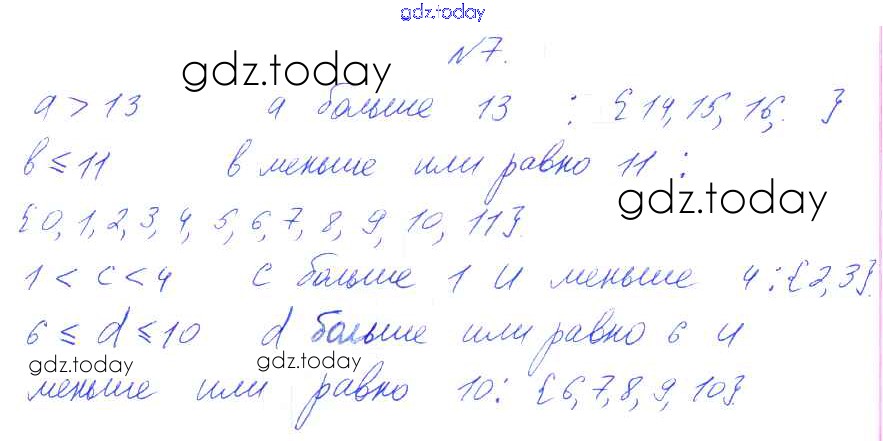 gdz.today
№7.
gdz.today
a > 13 a больше 13 : {14, 15, 16, . }
в ≤ 11 в меньше или равно 11 :
gdz.today
{0, 1, 2, 3, 4, 5, 6, 7, 8, 9, 10, 11}.
1 < c < 4 c больше 1 и меньше 4 : {2, 3}.
6 ≤ d ≤ 10 d больше или равно 6 и
gdz.today gdz.today
меньше или равно 10: {6, 7, 8, 9, 10}.